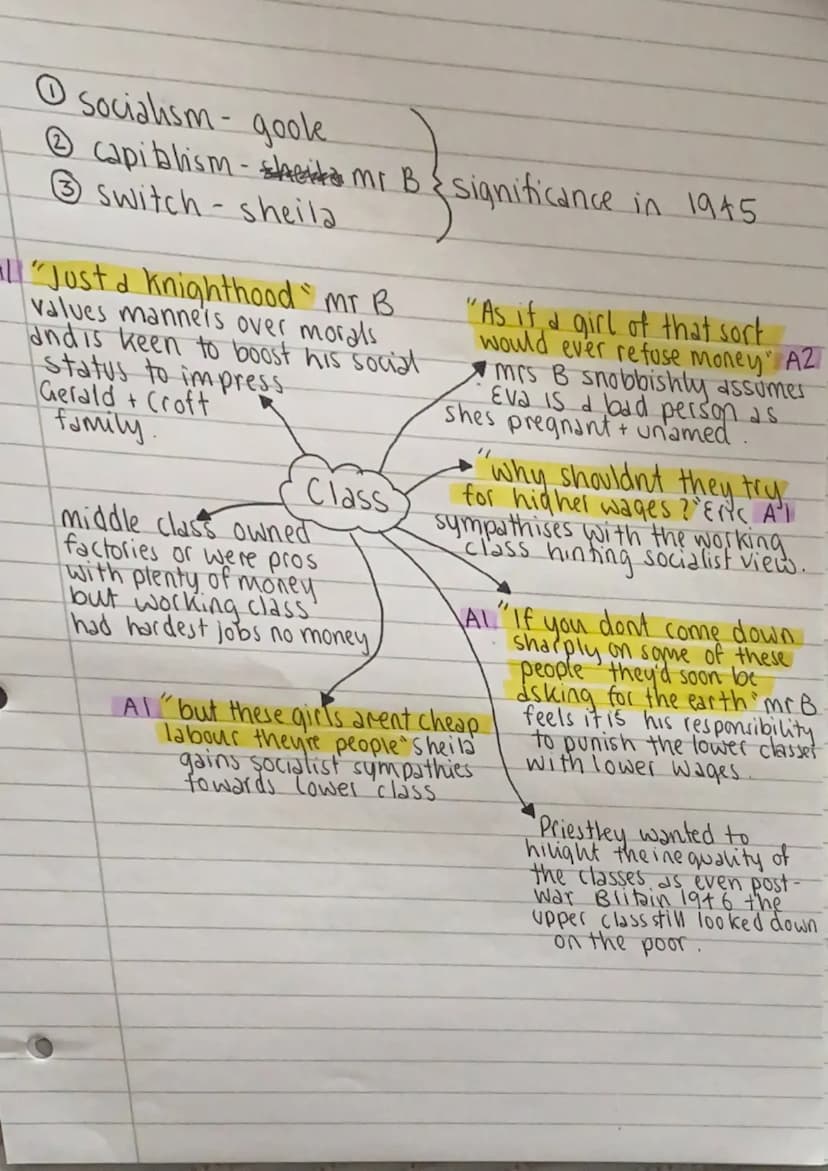 ① socialism - goole
② capitalism - mr B
③ switch - sheila
significance in 1945
"Just a Knighthood" mr B
values manners over morals
and is keen to boost his social
status to impress
Gerald + Croft
family.
"As if a girl of that sort
would ever refuse money" A2
mrs B snobbishly assumes
Eva is a bad person as
shes pregnant + unamed.
Class
"why shouldnt they try
for higher wages?" Eric A1
sympathises with the working
class hinting socialist view.
middle class owned
factories or were pros
with plenty of money
but working class
had hardest jobs no money
A1 "If you dont come down
sharply on some of these
people they'd soon be
asking for the earth" mr B
feels it is his responsibility
to punish the lower classes
with lower wages.
A1 "but these girls arent cheap
labour theyre people" Sheila
gains socialist sympathies
towards lower class
Priestley wanted to
hilight the inequality of
the classes as even post-
war Britain 1946 the
upper class still looked down
on the poor.